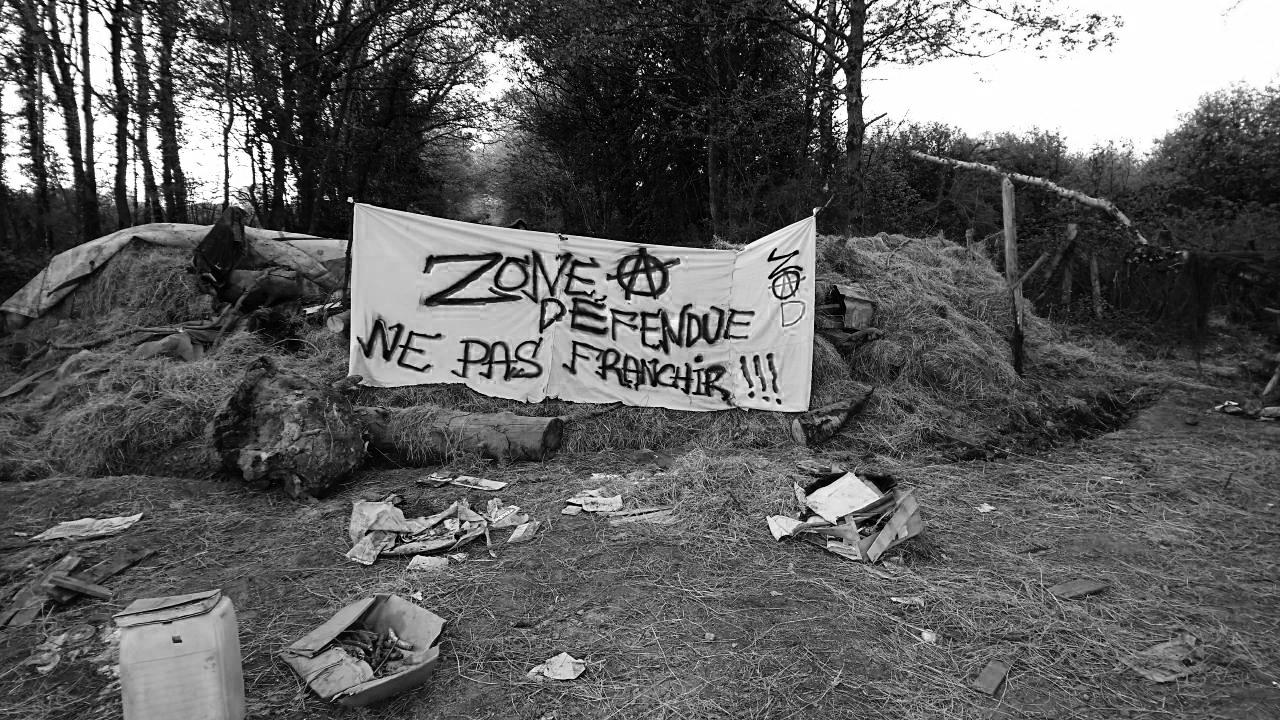 ZONE A
DÉFENDUE
NE PAS FRANCHIR !!!
ZAD